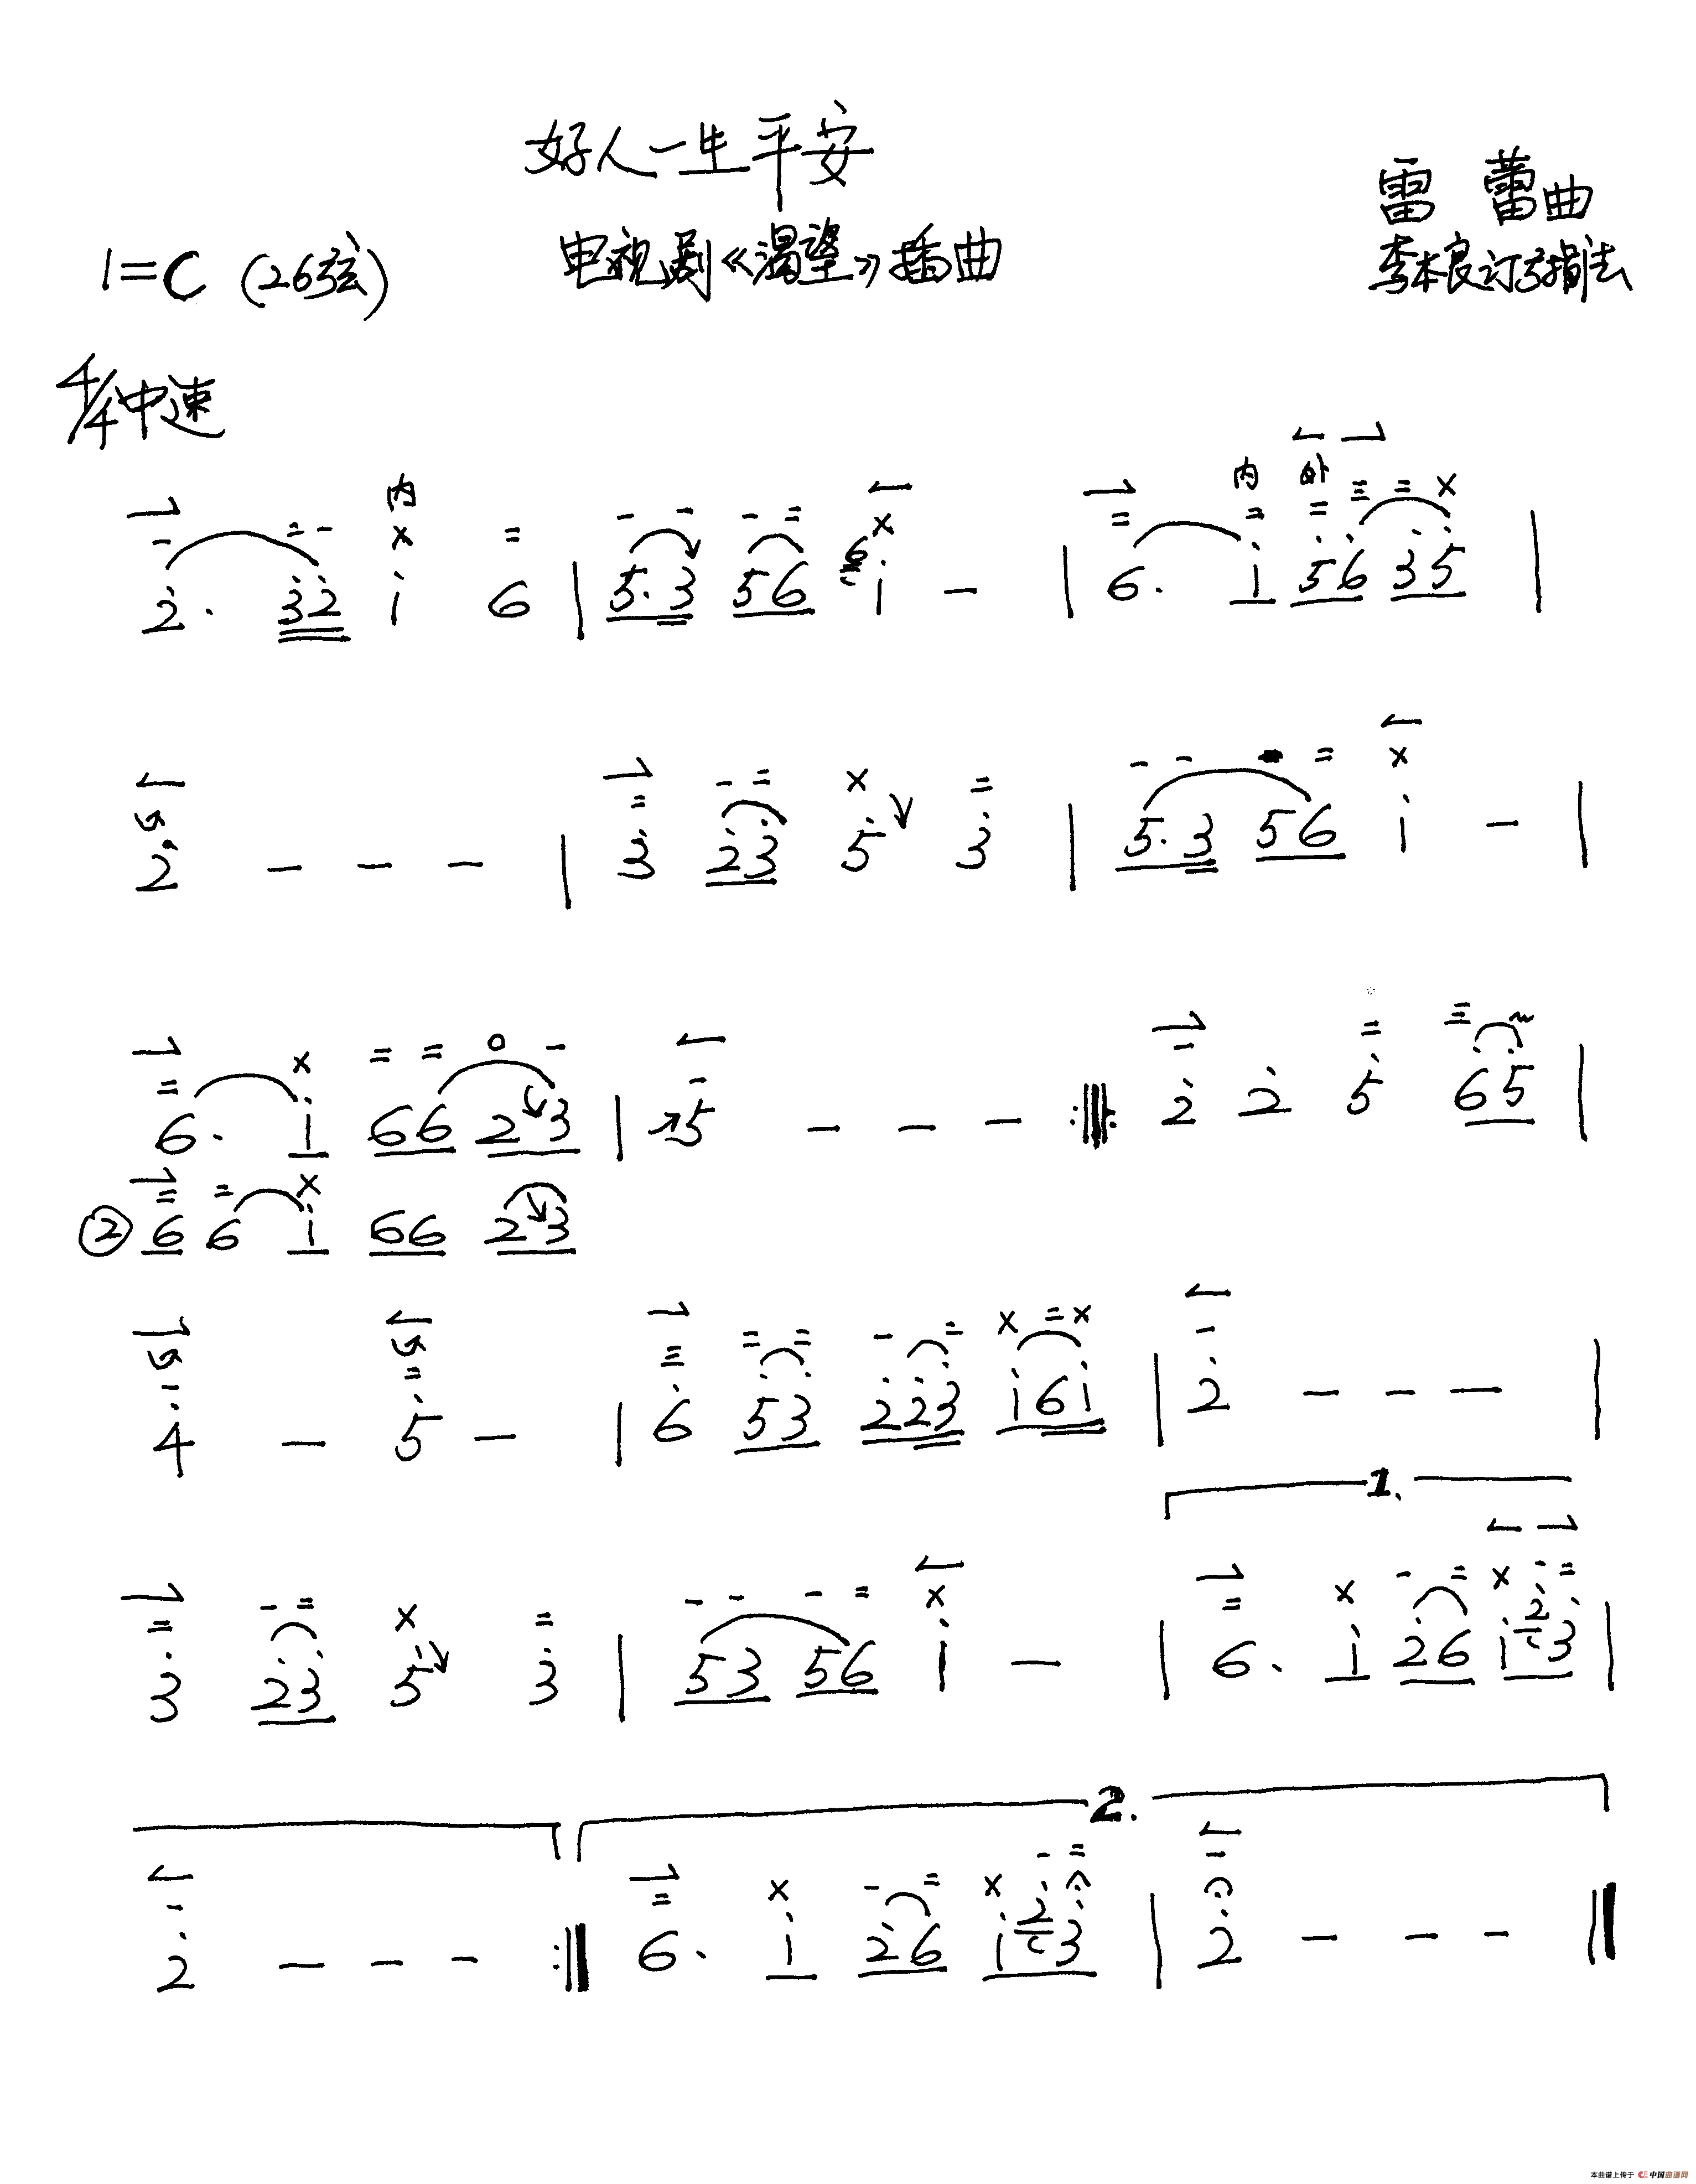 好人一生平安
雷 蕾曲
1=C (26弦)
电视剧《渴望》插曲
李本良订弓指法
4/4中速
内 内 外
2̇· 3̇2̇ 1̇ 6 | 5·3 56 6 1̇ - | 6· 1̇ 5̇6̇ 3̇5̇ |
2̇ - - - | 3̇ 2̇3̇ 5̇ 3̇ | 5·3 56 1̇ - |
6· 1̇ 66 23 | 5 - - - :‖: 2̇ 2̇ 5̇ 6̇5̇ |
② 6 6 1̇ 66 23
4̇ - 5̇ - | 6̇ 5̇3̇ 2̇2̇3̇ 1̇61̇ | 2̇ - - - |
1.
3̇ 2̇3̇ 5̇ 3̇ | 53 56 1̇ - | 6· 1̇ 2̇6 1̇ 2̇ 3̇ |
2.
2̇ - - - :‖ 6· 1̇ 2̇6 1̇ 2̇ 3̇ | 2̇ - - - ‖
本曲谱上传于 中国曲谱网